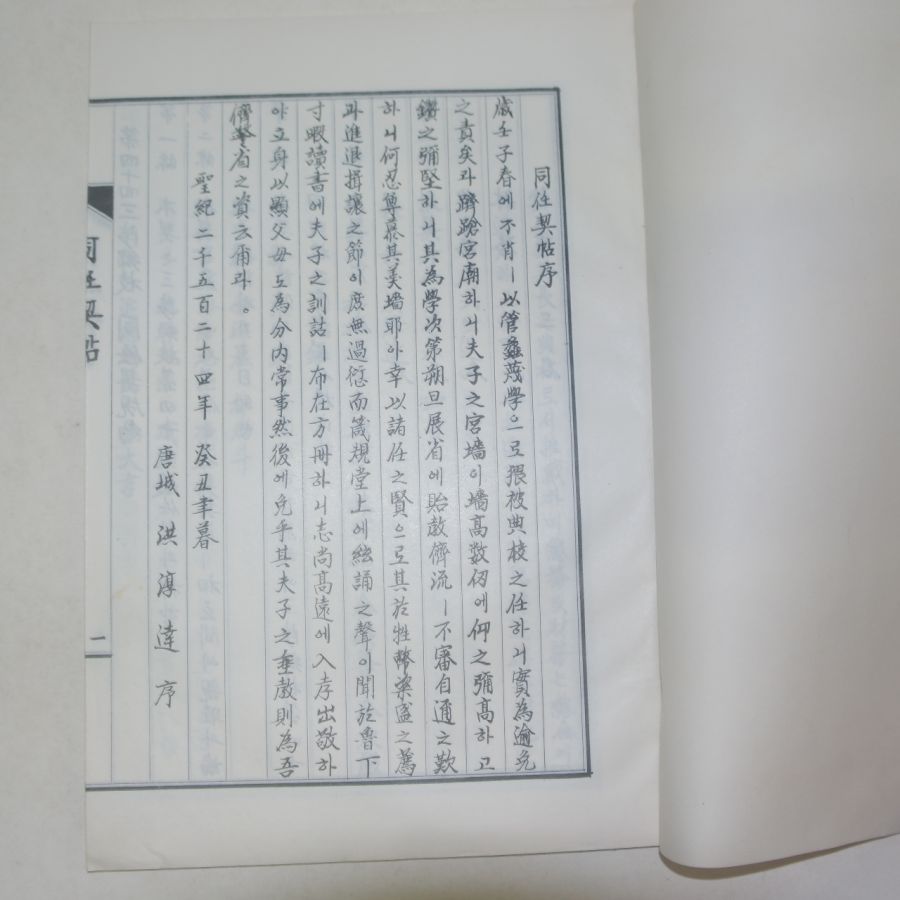 同任契帖序
歲壬子春에不肖ㅣ以管蠡蔑學으로猥被典校之任하니實為逾免
之責矣라躋蹌宮廟하니夫子之宮墻이墻高数仞에仰之彌高하고
鑽之彌堅하니其為學次第朔旦展省에貽教儕流ㅣ不審自通之歎
하니何忍尊慕其美墻耶아幸以諸任之賢으로其於牲幣粢盛之薦
과進退揖讓之節이度無過愆而箴規堂上에絃誦之聲이聞於魯下
寸暇讀書에夫子之訓詁ㅣ布在方冊하니志尚高遠에入孝出敬하
야立身以顯父母도為分内常事然後에免乎其夫子之垂教則為吾
儕警省之資云爾라。
聖紀二千五百二十四年 癸丑 暮
唐城 洪淳達 序
同任契帖
一